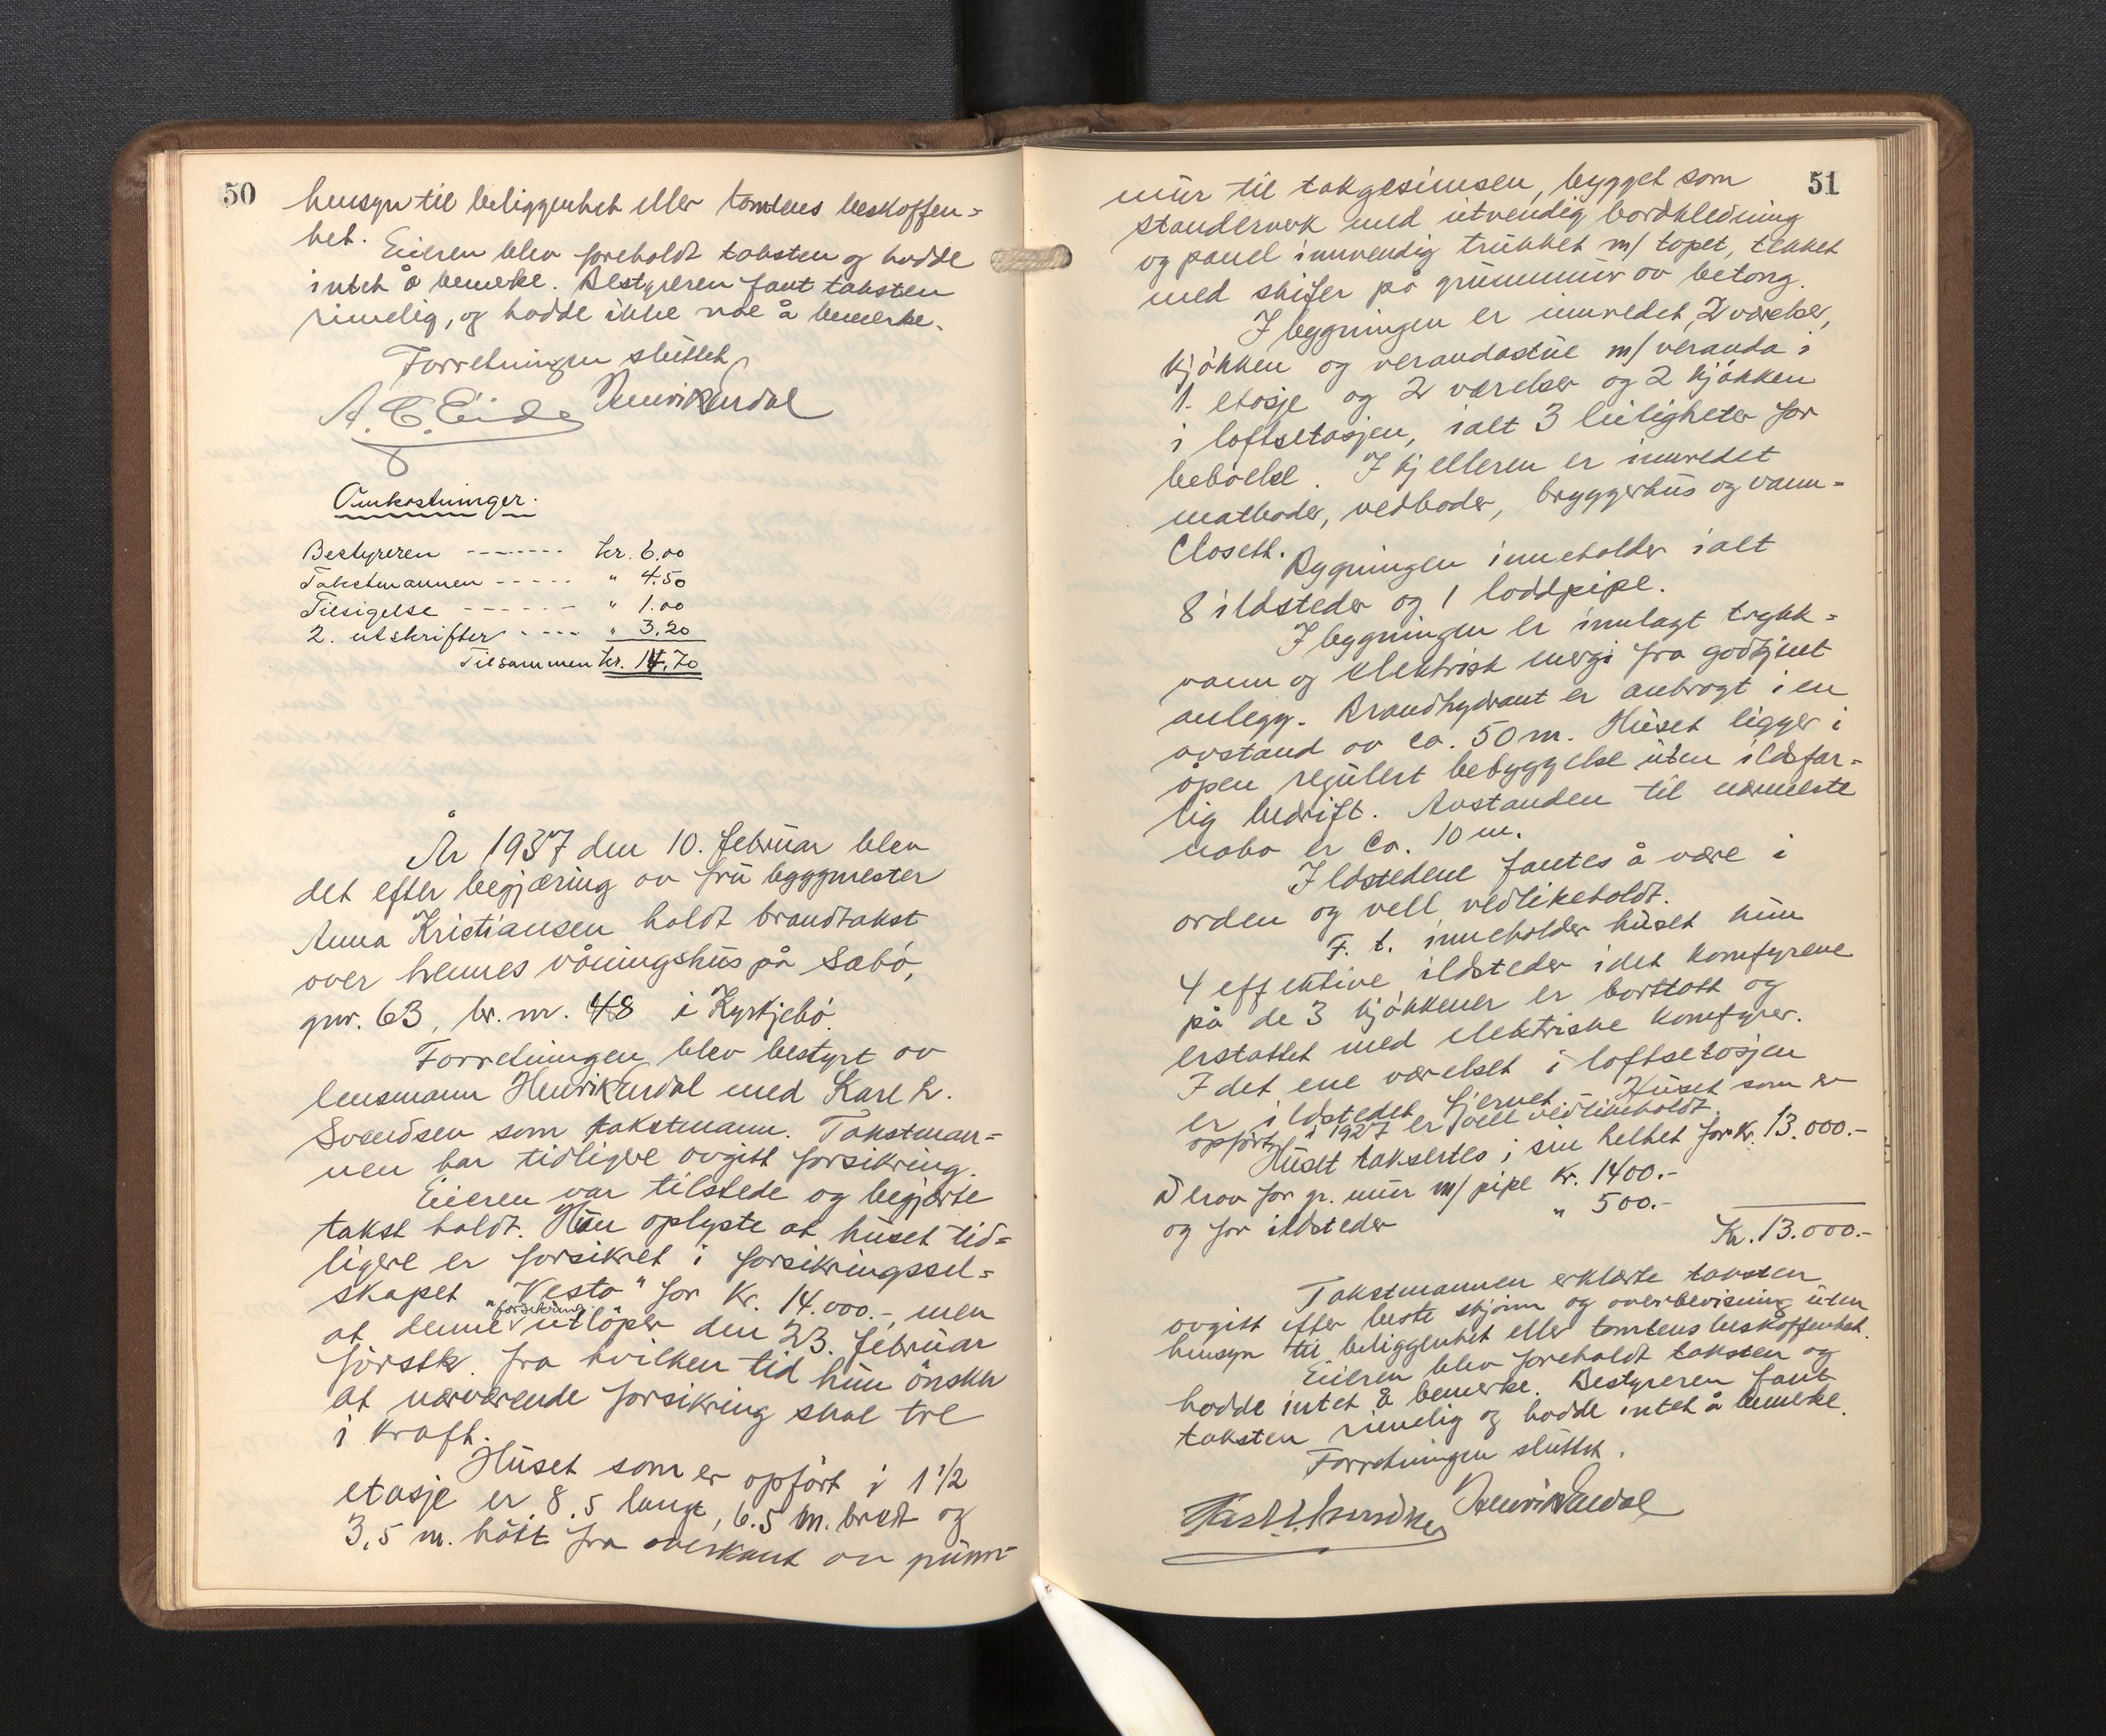 50
hensyn til beliggenhet eller tomtens beskaffen=
het.
Eieren blev foreholdt taksten og hadde
intet å bemerke. Bestyreren fant taksten
rimelig, og hadde ikke noe å bemerke.
Forretningen sluttet
A. E. Eide Henrik Urdal
Omkostninger.
Bestyreren ------- kr. 6.00
Takstmannen ----- " 4.50
Tilsigelse ------ " 1.00
2. utskrifter ---- " 3.20
Tilsammen kr. 14.70
År 1937 den 10. februar blev
det efter begjæring av fru byggmester
Anna Kristiansen holdt brandtakst
over hennes våningshus på Sæbö,
gnr. 63, br. nr. 48 i Kyrkjebö.
Forretningen blev bestyrt av
lensmann Henrik Urdal med Karl L.
Svendsen som takstmann. Takstman=
nen har tidligere avgitt forsikring.
Eieren var tilstede og begjærte
takst holdt. Hun oplyste at huset tid=
ligere er forsikret i forsikringssel=
skapet "Vesta" for kr. 14.000.-, men
at denne forsikring utlöper den 23. februar
förstk. fra hvilken tid hun önsker
at nærværende forsikring skal tre
i kraft.
Huset som er opfört i 1 1/2
etasje er 8.5 langt, 6.5 m. bredt og
3,5 m. höit fra overkant av grunn-
51
mur til takgesimsen, bygget som
standerverk med utvendig bordkledning
og panel innvendig trukket m/ tapet, tekket
med skifer på grunnmur av betong.
I bygningen er innredet 2 værelser,
kjökken og verandastue m/ veranda i
1. etasje og 2 værelser og 2 kjökken
i loftsetasjen, ialt 3 leiligheter for
beboelse. I kjelleren er innredet
matboder, vedboder, bryggerhus og vann-
closett.
Bygningen inneholder ialt
8 ildsteder og 1 loddpipe.
I bygningen er innlagt trykk=
vann og elektrisk energi fra godkjent
anlegg. Brandhydrant er anbragt i en
avstand av ca. 50 m. Huset ligger i
åpen regulert bebyggelse uten ildsfar=
lig bedrift. Avstanden til nærmeste
nabo er ca. 10 m.
Ildstedene fantes å være i
orden og vell vedlikeholdt.
F. t. inneholder huset kun
4 effektive ildsteder idet komfyrene
på de 3 kjökkener er borttatt og
erstattet med elektriske komfyrer.
I det ene værelset i loftsetasjen
er ildstedet fjernet. Huset som er
opfört i 1927 er vell vedlikeholdt.
Huset taksertes i sin helhet for kr. 13.000.-
Derav for gr. mur m/ pipe kr. 1400.-
og for ildsteder " 500.-
Kr. 13.000.-
Takstmannen erklærte taksten
avgitt efter beste skjönn og overbevisning uten
hensyn til beliggenhet eller tomtens beskaffenhet.
Eieren blev foreholdt taksten og
hadde intet å bemerke. Bestyreren fant
taksten rimelig og hadde intet å bemerke.
Forretningen sluttet.
Karl L. Svendsen Henrik Urdal